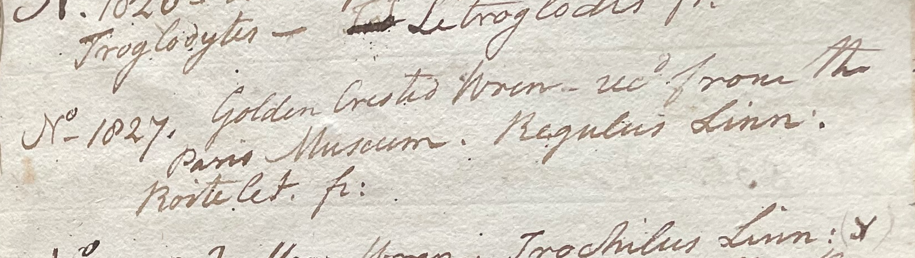 No. 1826
Troglodytes — Le troglodis fr.
No 1827. Golden Crested Wren – recd from the
Paris Museum. Regulus Linn:.
Roitelet. fr:
Wren. Trochilus Linn: (x)